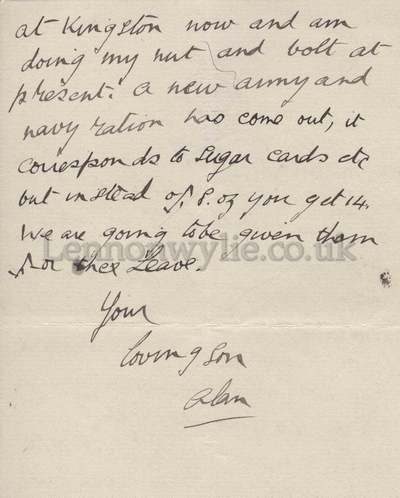 at Kingston now and am
doing my nut and bolt at
present. a new army and
navy ration has come out, it
corresponds to sugar cards etc
but instead of 8. oz you get 14.
We are going to be given them
for thex Leave.
Your
loving son
Alan
Lennonwylie.co.uk